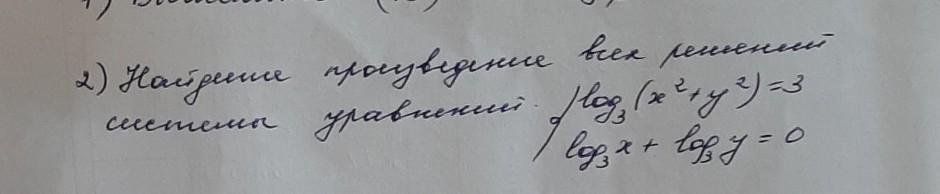 2) Найдите произведение всех решений
системы уравнений. { log₃(x²+y²)=3
log₃x + log₃y = 0